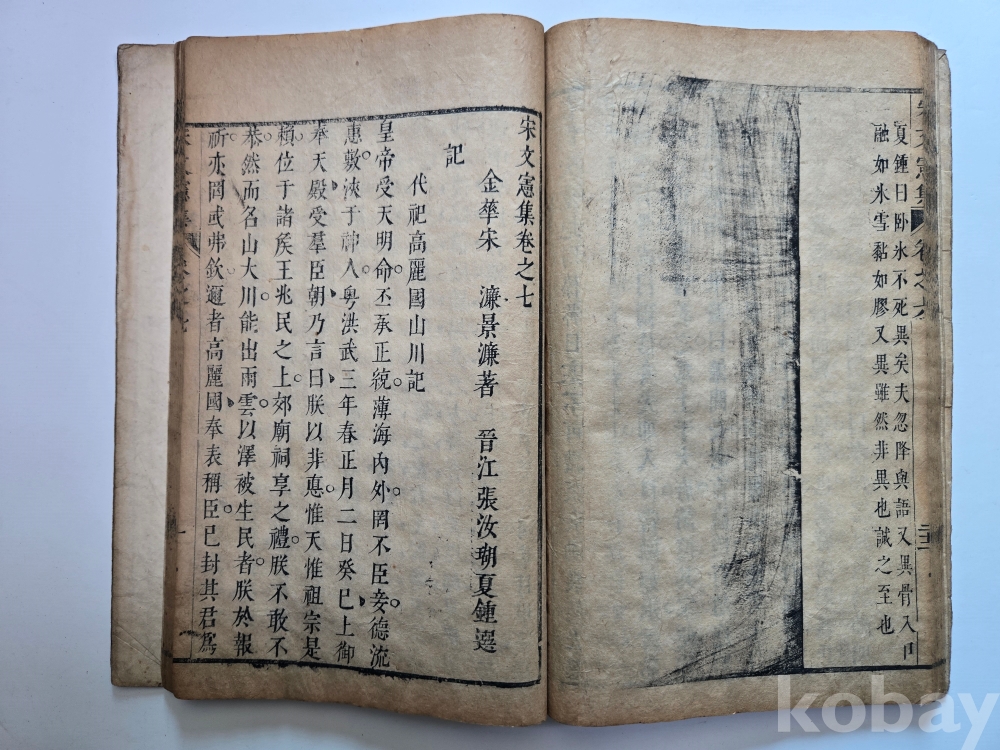 宋文憲集 卷之六
夏鍾曰臥氷不死異矣夫忽降與語又異骨入口
融如氷雪黏如膠又異雖然非異也誠之至也
宋文憲集卷之七
金華宋　濂景濂著　晉江張汝瑚夏鍾選
記
代祀高麗國山川記
皇帝受天明命丕承正統薄海內外罔不臣妾德流
惠敷浹于神人粵洪武三年春正月二日癸巳上御
奉天殿受羣臣朝乃言曰朕以非悳惟天惟祖宗是
賴位于諸矦王兆民之上郊廟祠享之禮朕不敢不
恭然而名山大川能出雨雲以澤被生民者朕於報
祈亦罔或弗欽邇者高麗國奉表稱臣已封其君爲
宋文憲集 卷之七 一
kobay